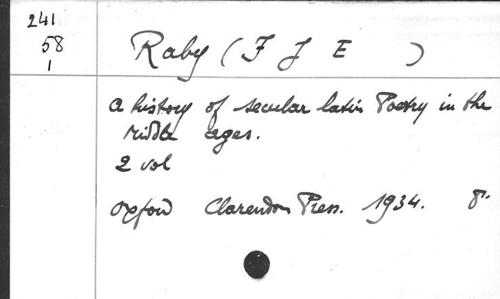 241
58
1
Raby (F J E )
A history of secular latin Poetry in the
Middle ages.
2 vol
Oxford Clarendon Press. 1934. 8°.